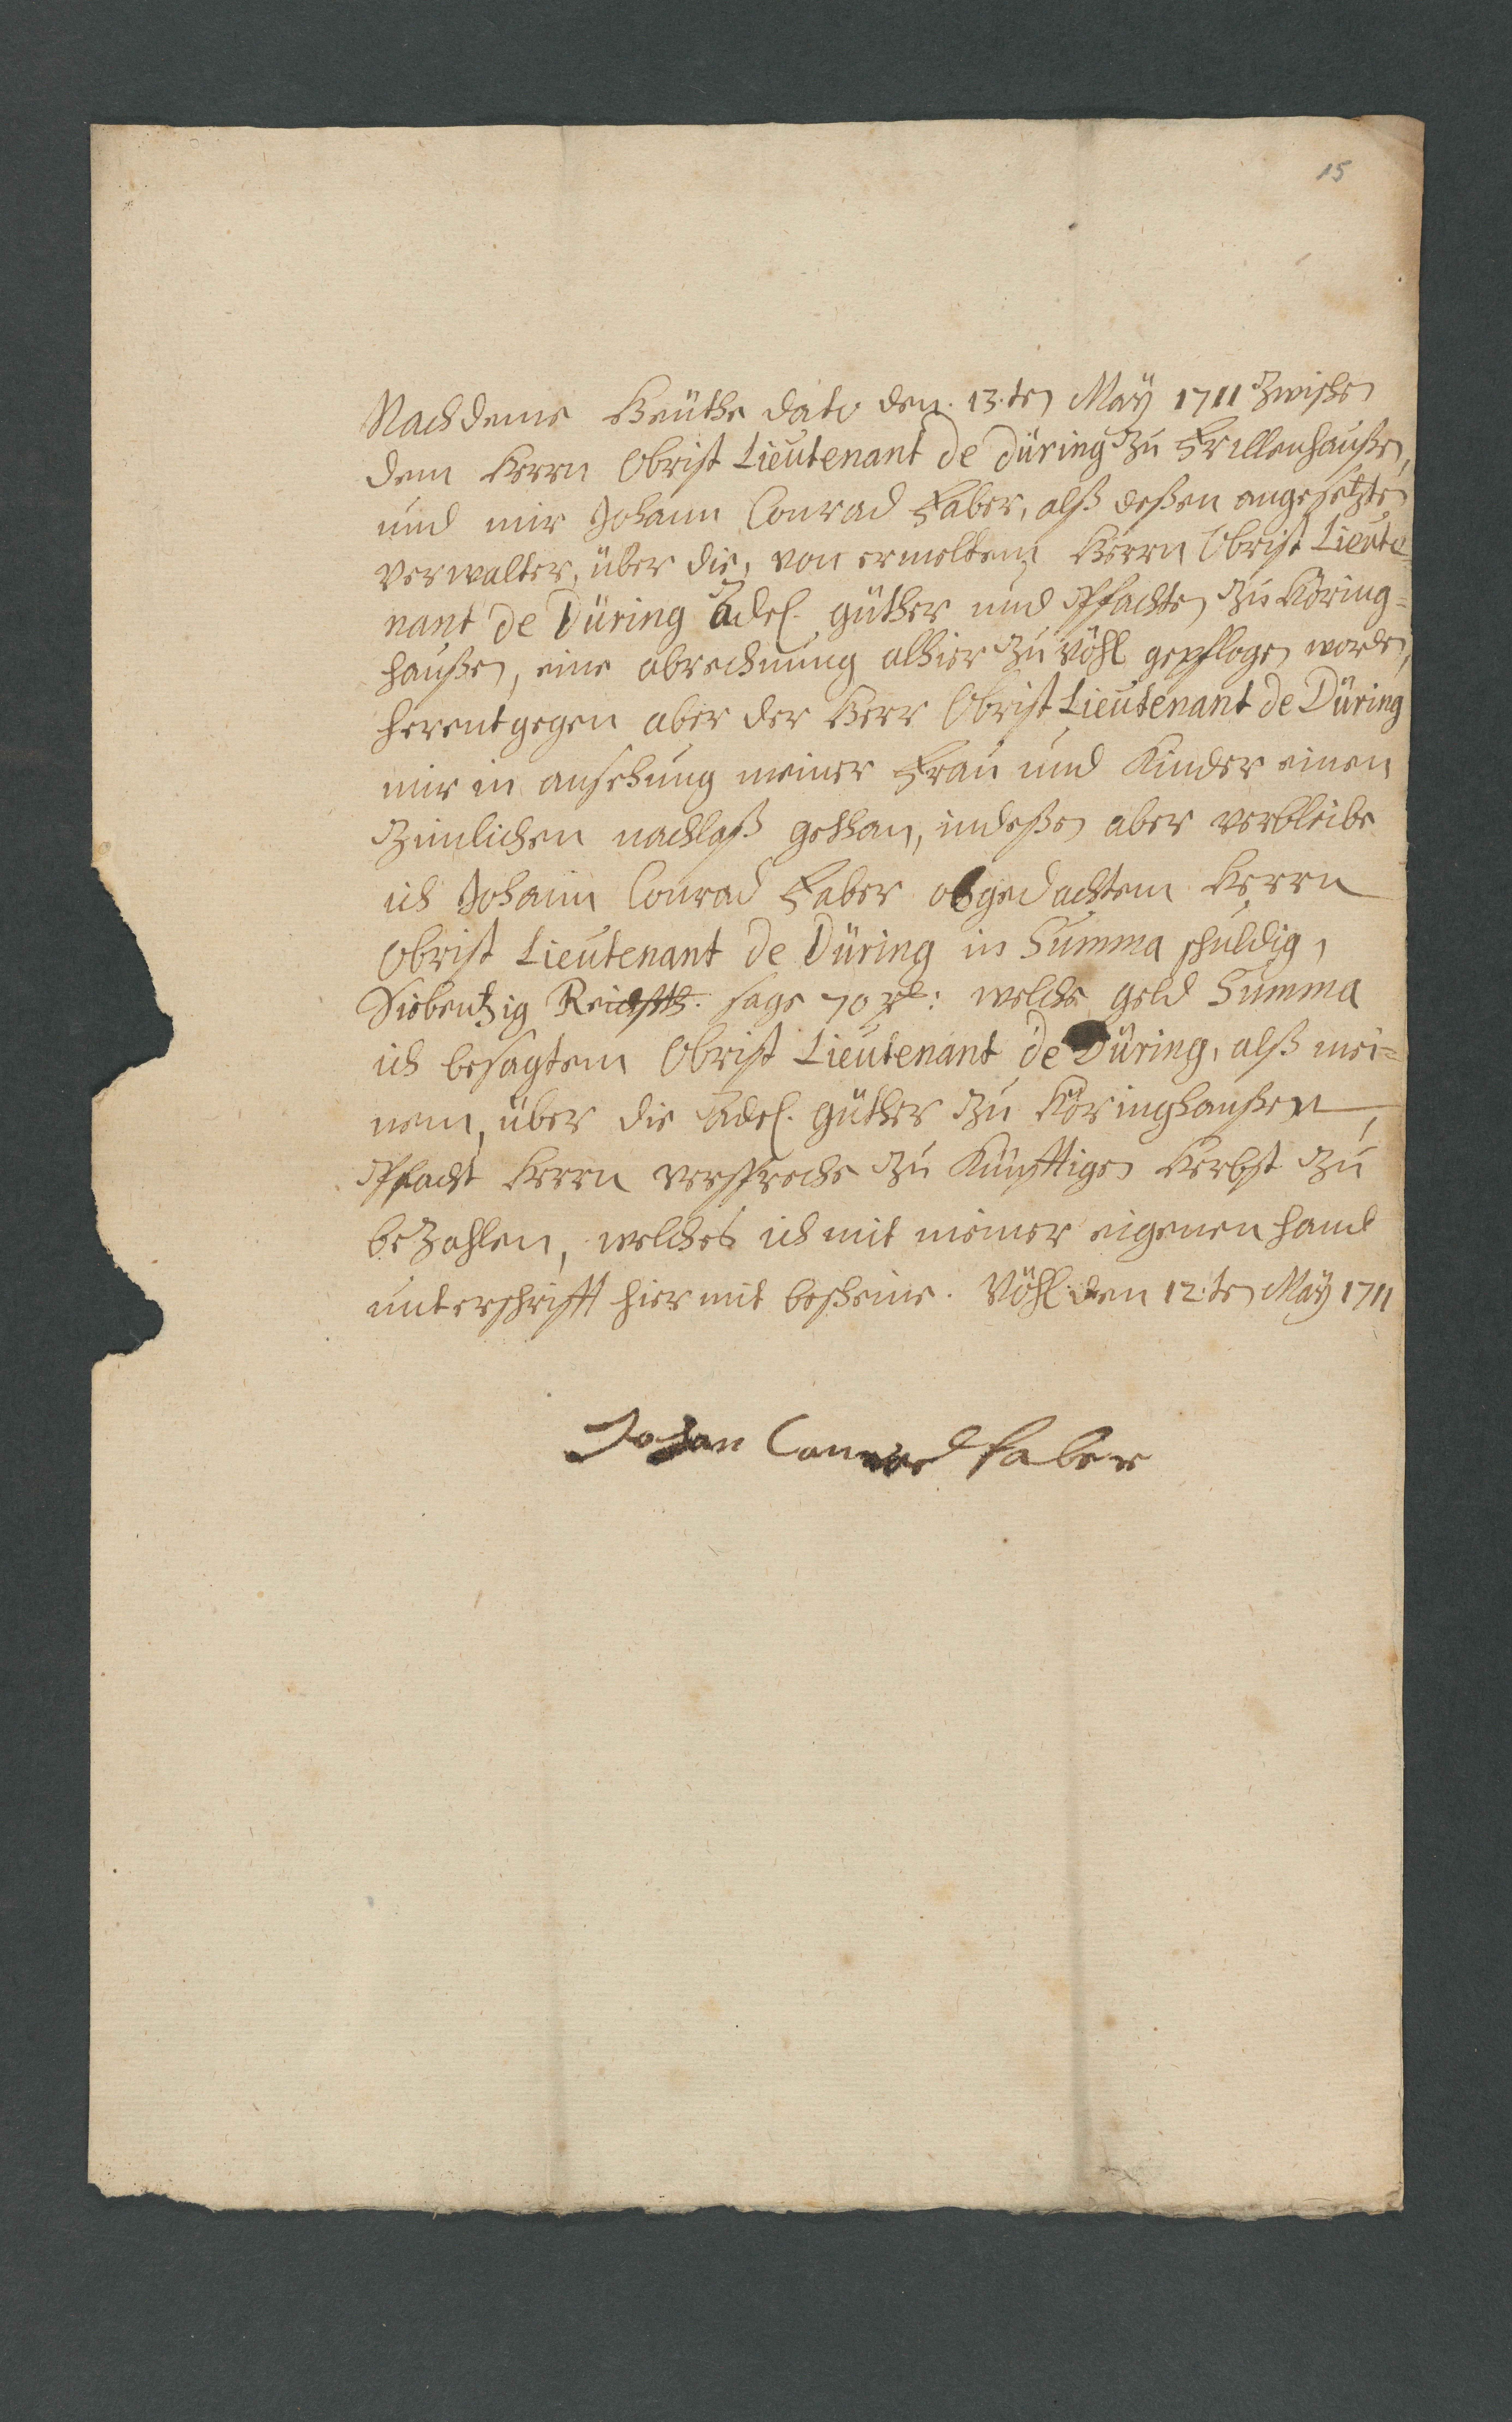 15
Nachdeme Heüthe dato den. 13.ten Maÿ 1711 zwischen
dem Herrn Obrist Lieutenant de Düring zu Frillenhaußen,
und mir Johann Conrad Faber, alß deßen angesetzten
verwalter, über die, von ermeltem Herrn Obrist Lieute-
nant de Düring Adel. güther und Pfachten zu Höring=
haußen, eine abrechnung alhier zu Vöhl gepflogen worden,
herentgegen aber der Herr Obrist Lieutenant de Düring
mir in ansehung meiner Frau und Kinder einen
zimlichen nachlaß gethan, indeßen aber verbleibe
ich Johann Conrad Faber obgedachtem Herrn
Obrist Lieutenant de Düring in Summa schuldig,
Siebentzig Reichsthl. sage 70 rl: welche geld Summa
ich besagtem Obrist Lieutenant de Düring, alß mei=
nem, über die Adel. güther zu Höringhaußen,
Pfacht Herrn verspreche zu Künfftigen Herbst zu
bezahlen, welches ich mit meiner eigenen hand
unterschrifft hiermit bescheine. Vöhl den 12.ten Maÿ 1711
Johan Conrad faber